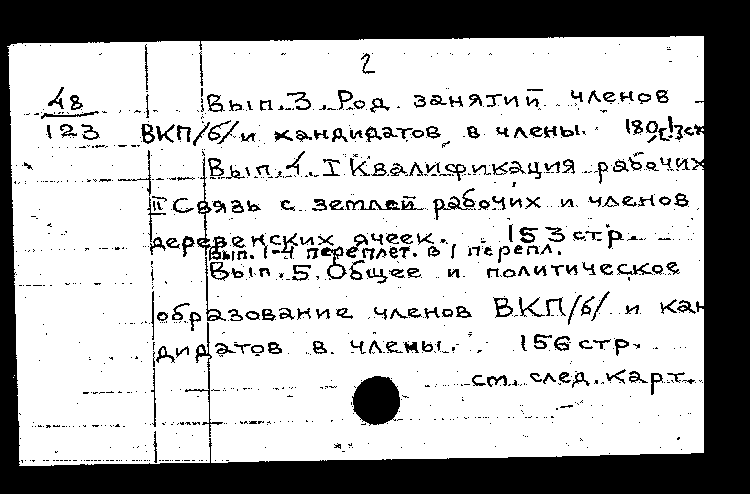 2
48 Вып.3. Род занятий членов
123 ВКП/б/ и кандидатов в члены.
Вып.4. I Квалификация рабочих
II Связь с землей рабочих и членов
деревенских ячеек. 153 стр.
Вып. 1-4 переплет. в 1 перепл.
Вып. 5. Общее и политическое
образование членов ВКП/б/ и кан
дидатов в члены. 156 стр.
см. след. карт.